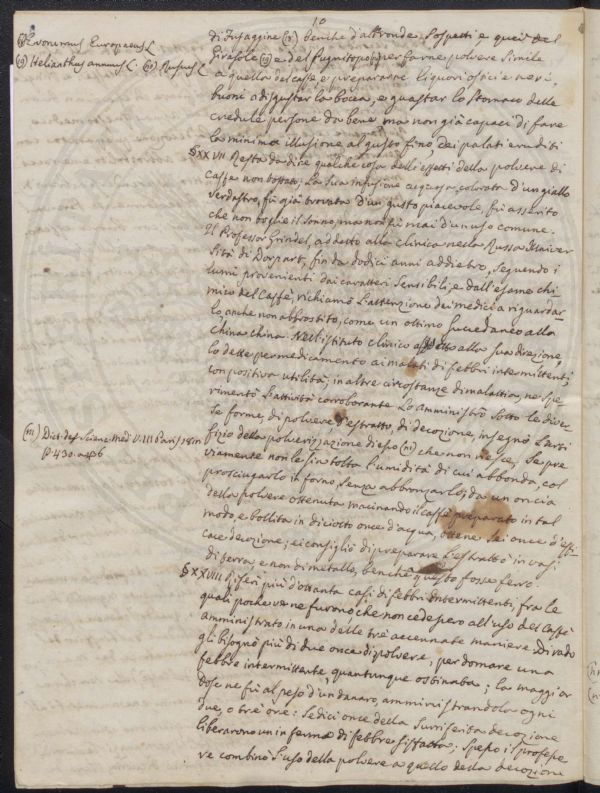 10
(18) Evonimus Europaeus L
(19) Helianthus annuus L. (20) Ruscus L
di Fusaggine (18) benche d'altronde sospetti, e quei del
Girasole (19) e del Pugnitopo (20) per farne polvere simile
a quella del caffè, e prepararne liquori oscuri e neri,
buoni a disgustar la bocca, e guastar lo stomaco delle
credule persone dabbene, ma non già capaci di fare
la minima illusione al gusto fino dei palati eruditi
§XXVII Resta da dire qualche cosa delli effetti della polvere di
Caffè non tostato; La sua infusione acquosa, colorata d'un giallo
verdastro, fù già trovata d'un gusto piacevole, fù asserito
che non toglie il sonno, ma non fù mai d'un uso comune.
Il Professor Grindel, addetto alla clinica nella Russa Univer
sità di Dorpart, fin da dodici anni addietro, seguendo i
lumi provenienti dai caratteri sensibili, e dall'esame chi
mico del Caffè, richiamò l'attenzione dei medici a riguardar
lo, anche non abbrostito, come un ottimo succedaneo alla
china china. Nell'istituto clinico alla sua direzione,
lo dette per medicamento ai malati di febbri intermittenti,
con positiva utilità; in altre circostanze di malattia, ne spe
rimentò l'attività corroborante. Lo amministrò sotto le diver
se forme, di polvere, d'estratto, di decozione, insegnò l'arti
fizio della polverizzazione di esso (21) che non riesce, se pre
viamente non le sia tolta l'umidità di cui abbonda, col
prosciugarlo in forno, senza abbronzarlo; da un oncia
della polvere ottenuta macinando il caffè preparato in tal
modo, e bollita in diciotto once d'acqua, ottene sei once d'effi
cace decozione; e consigliò di preparare l'estratto in vasi
di terra, e non di metallo, benche questo fosse ferro.
(21) Dict. des Scienc. Med. V. III Paris
p. 430. a 436
§XXVIII Riferì più d'ottanta casi di febbri intermittenti, fra le
quali poche ve ne furono che non cedessero all'uso del Caffè
amministrato in una delle tre accennate maniere. Di rado
gli bisognò più di due once di polvere, per domare una
febbre intermittente, quantunque ostinata; la maggior
dose ne fù al peso d'un danaro, amministrandola ogni
due, o tre ore: Sedici once della surriferita decozione
liberarono un infermo di febbre sì fatta; spesso il professo
re combinò l'uso della polvere a quello della decozione